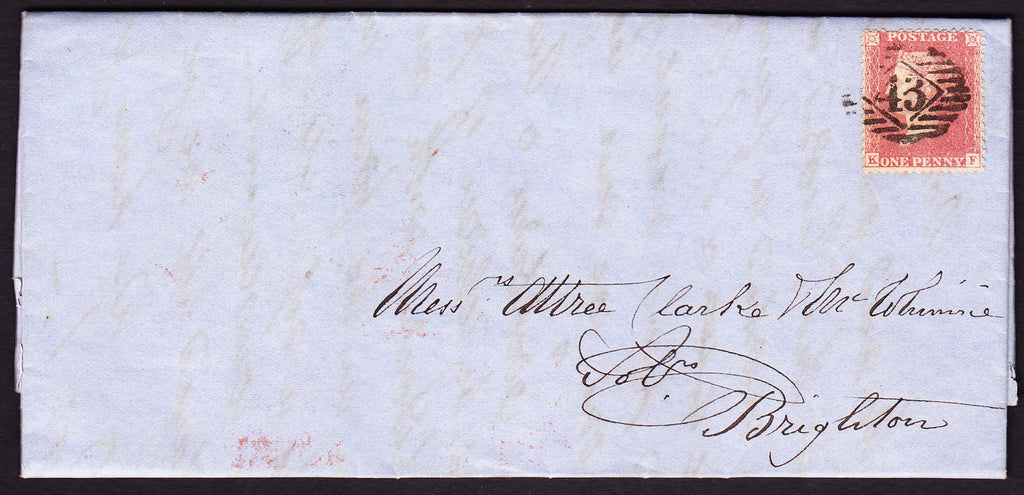 POSTAGE
43
K ONE PENNY F
Mess.rs Attree Clarke & Mc Whinnie
Solrs
Brighton